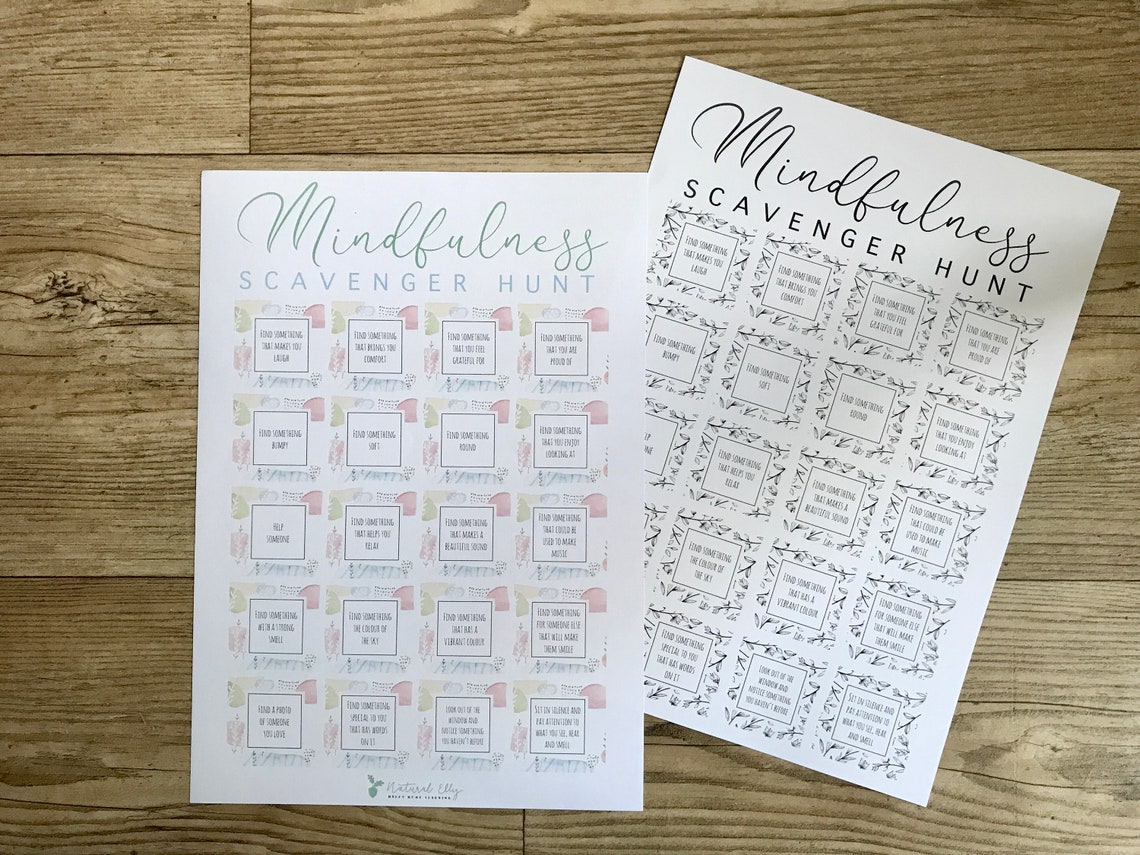 Mindfulness
SCAVENGER HUNT
FIND SOMETHING
THAT MAKES YOU
LAUGH
FIND SOMETHING
THAT BRINGS YOU
COMFORT
FIND SOMETHING
THAT YOU FEEL
GRATEFUL FOR
FIND SOMETHING
THAT YOU ARE
PROUD OF
FIND SOMETHING
BUMPY
FIND SOMETHING
SOFT
FIND SOMETHING
ROUND
FIND SOMETHING
THAT YOU ENJOY
LOOKING AT
HELP
SOMEONE
FIND SOMETHING
THAT HELPS YOU
RELAX
FIND SOMETHING
THAT MAKES A
BEAUTIFUL SOUND
FIND SOMETHING
THAT COULD BE
USED TO MAKE
MUSIC
FIND SOMETHING
WITH A STRONG
SMELL
FIND SOMETHING
THE COLOUR OF
THE SKY
FIND SOMETHING
THAT HAS A
VIBRANT COLOUR
FIND SOMETHING
FOR SOMEONE ELSE
THAT WILL MAKE
THEM SMILE
FIND A PHOTO
OF SOMEONE
YOU LOVE
FIND SOMETHING
SPECIAL TO YOU
THAT HAS WORDS
ON IT
LOOK OUT OF THE
WINDOW AND
NOTICE SOMETHING
YOU HAVEN'T BEFORE
SIT IN SILENCE AND
PAY ATTENTION TO
WHAT YOU SEE, HEAR
AND SMELL
Natural Elly
Mindfulness
SCAVENGER HUNT
FIND SOMETHING
THAT MAKES YOU
LAUGH
FIND SOMETHING
THAT BRINGS YOU
COMFORT
FIND SOMETHING
THAT YOU FEEL
GRATEFUL FOR
FIND SOMETHING
THAT YOU ARE
PROUD OF
SOMETHING
BUMPY
FIND SOMETHING
SOFT
FIND SOMETHING
ROUND
FIND SOMETHING
THAT YOU ENJOY
LOOKING AT
FIND SOMETHING
THAT HELPS YOU
RELAX
FIND SOMETHING
THAT MAKES A
BEAUTIFUL SOUND
FIND SOMETHING
THAT COULD BE
USED TO MAKE
MUSIC
FIND SOMETHING
THE COLOUR OF
THE SKY
FIND SOMETHING
THAT HAS A
VIBRANT COLOUR
FIND SOMETHING
FOR SOMEONE ELSE
THAT WILL MAKE
THEM SMILE
FIND SOMETHING
SPECIAL TO YOU
THAT HAS WORDS
ON IT
LOOK OUT OF THE
WINDOW AND
NOTICE SOMETHING
YOU HAVEN'T BEFORE
SIT IN SILENCE AND
PAY ATTENTION TO
WHAT YOU SEE, HEAR
AND SMELL